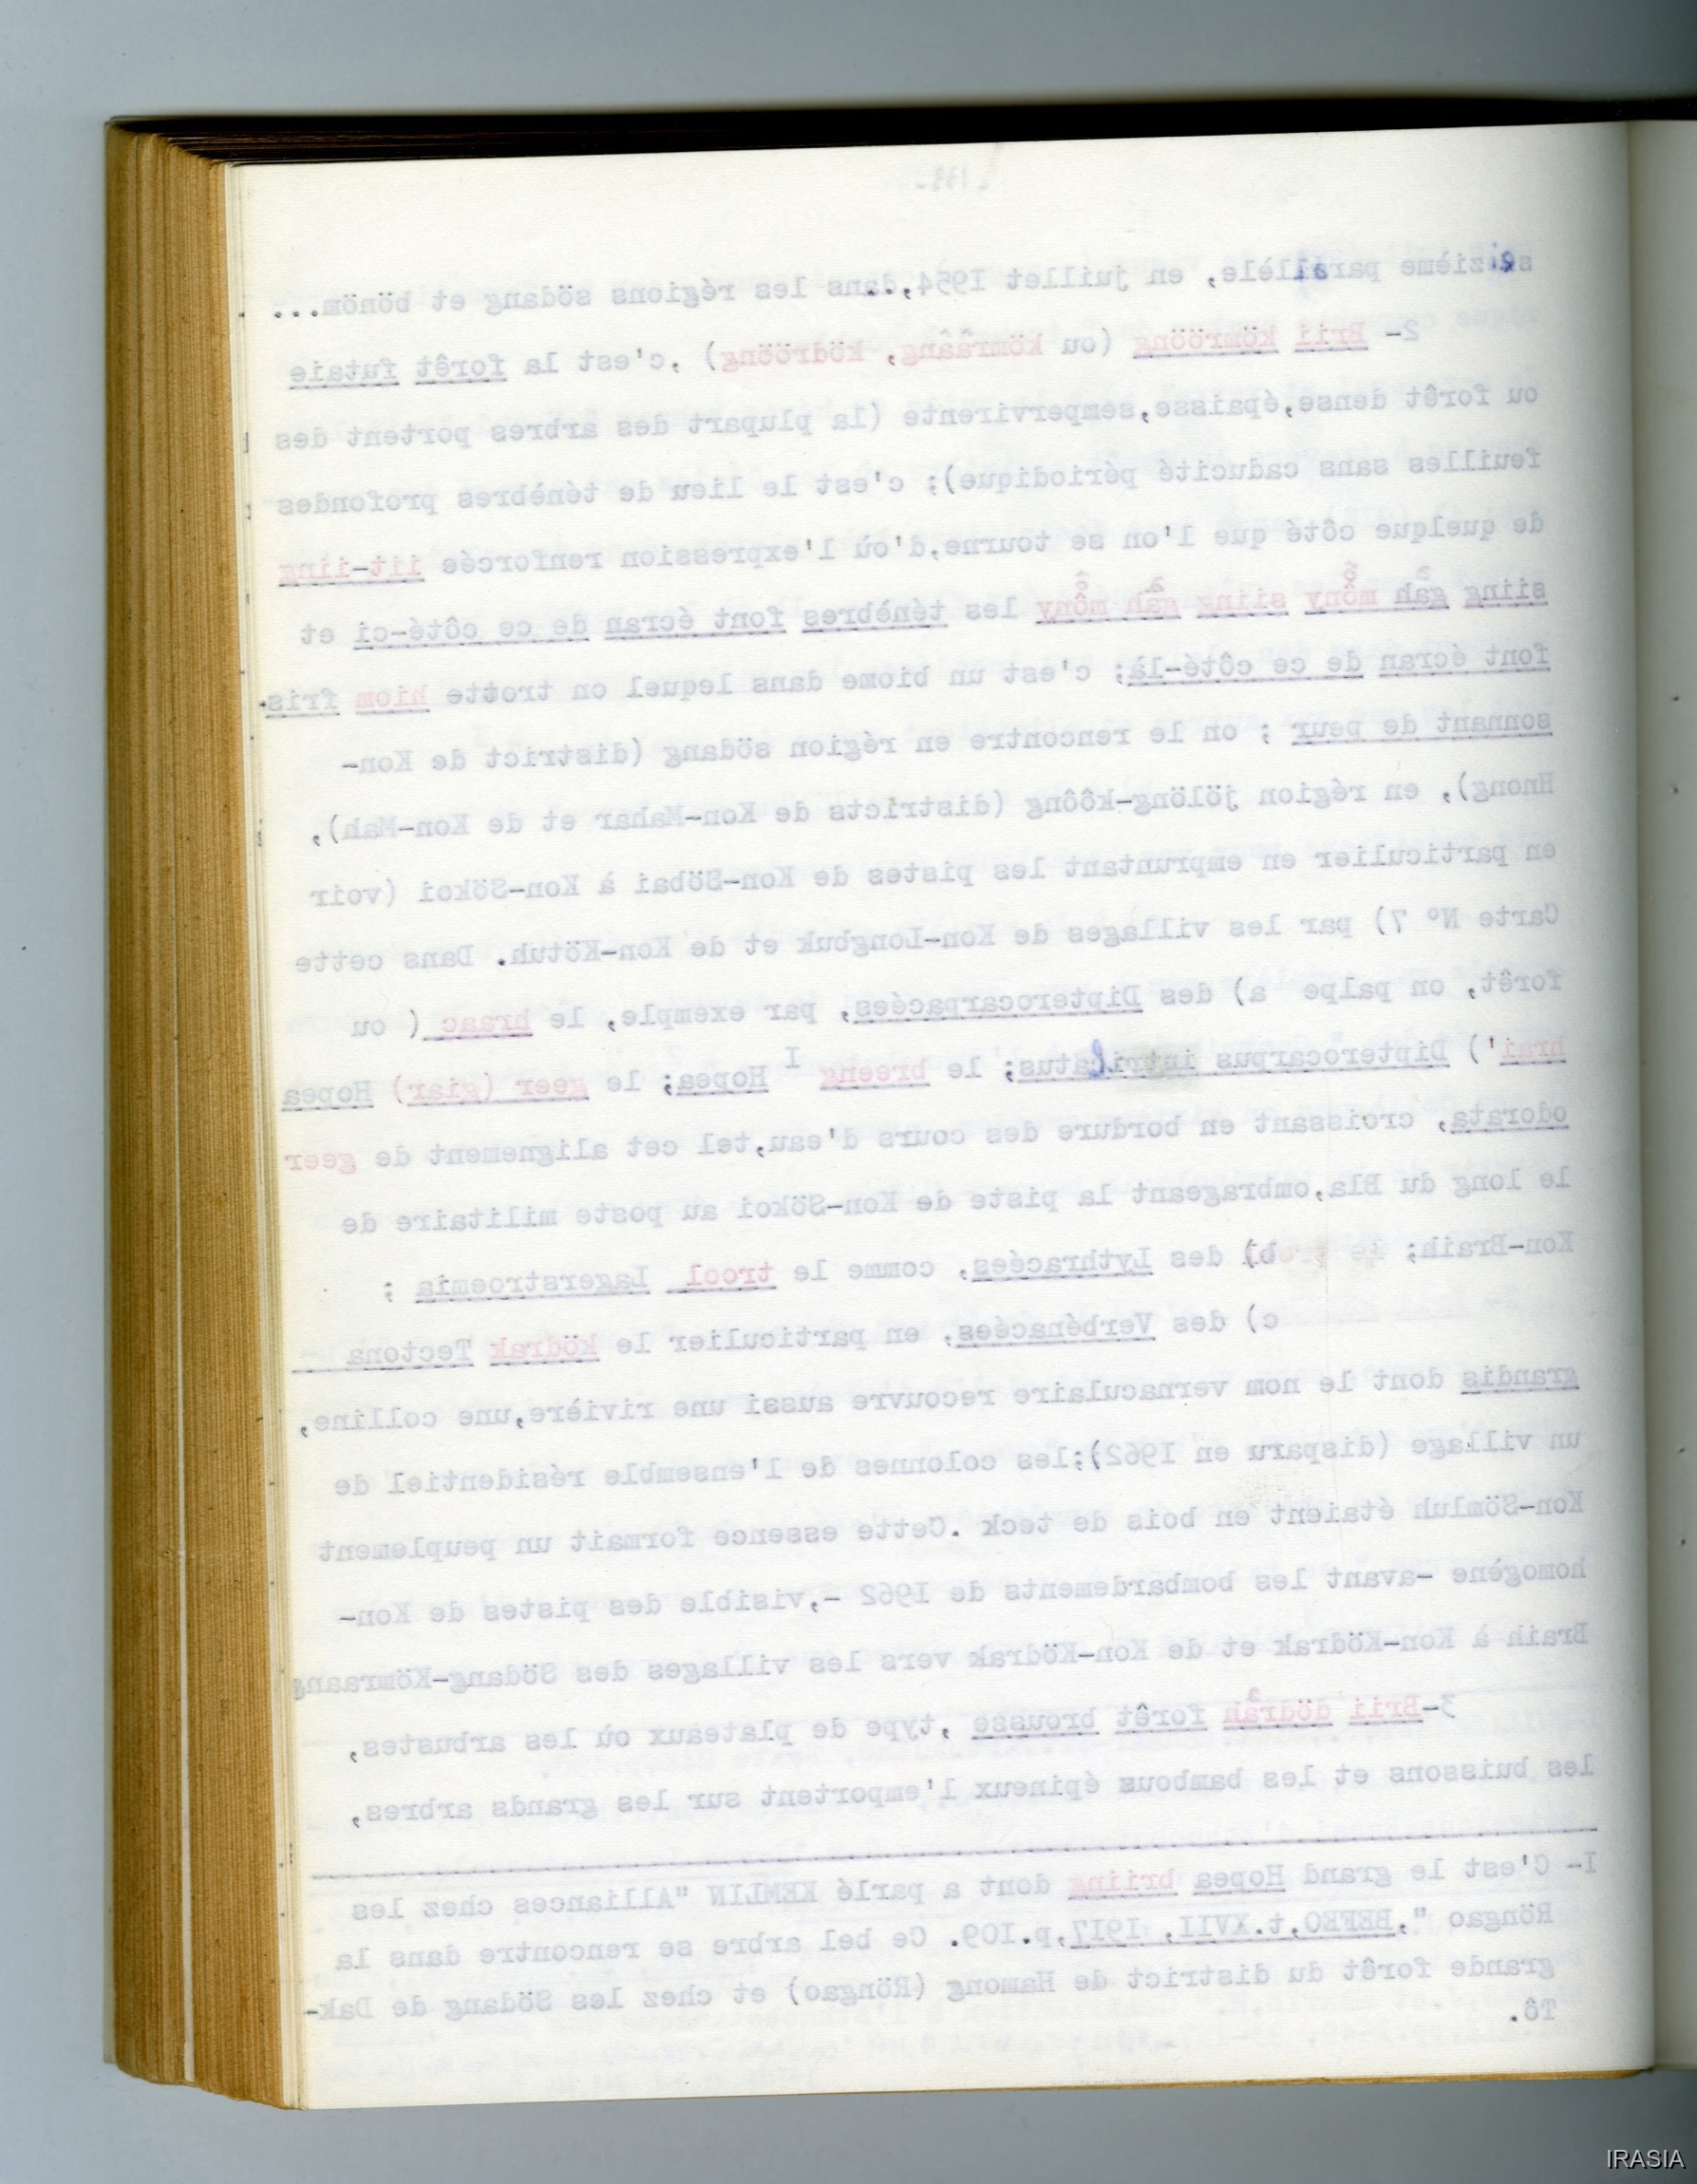 seizième parallèle, en juillet I954,dans les régions södang et bönöm...
2- Brii kömrööng (ou kömrâàng, ködrööng) ,c'est la forêt futaie
ou forêt dense,épaisse,sempervirente (la plupart des arbres portent des
feuilles sans caducité périodique); c'est le lieu de ténèbres profondes
de quelque côté que l'on se tourne,d'où l'expression renforcée iit-iing
siing gah môny siing gah môny les ténèbres font écran de ce côté-ci et
font écran de ce côté-là; c'est un biome dans lequel on trotte hiom fris-
sonnant de peur ; on le rencontre en région södang (district de Kon-
Hnong), en région jölöng-kôông (districts de Kon-Mahar et de Kon-Mah),
en particulier en empruntant les pistes de Kon-Söbai à Kon-Sökoi (voir
Carte Nº 7) par les villages de Kon-Longbuk et de Kon-Kötuh. Dans cette
forêt, on palpe a) des Dipterocarpacées, par exemple, le braac ( ou
brai') Dipterocarpus le breeng I Hopea; le geer (giar) Hopea
odorata, croissant en bordure des cours d'eau,tel cet alignement de geer
le long du Bla,ombrageant la piste de Kon-Sökoi au poste militaire de
Kon-Braih; b) des Lythracées, comme le trool Lagerstroemia ;
c) des Verbénacées, en particulier le ködrak Tectona
grandis dont le nom vernaculaire recouvre aussi une rivière,une colline,
un village (disparu en I962);les colonnes de l'ensemble résidentiel de
Kon-Sömluh étaient en bois de teck .Cette essence formait un peuplement
homogène -avant les bombardements de I962 -,visible des pistes de Kon-
Braih à Kon-Ködrak et de Kon-Ködrak vers les villages des Södang-Kömraang
3-Brii dödrah forêt brousse ,type de plateaux où les arbustes,
les buissons et les bambous épineux l'emportent sur les grands arbres,
I- C'est le grand Hopea briing dont a parlé KEMLIN "Alliances chez les
Röngao ",BEFEO,t.XVII, I9I7,p.I09. Ce bel arbre se rencontre dans la
grande forêt du district de Hamong (Röngao) et chez les Södang de Dak-
Tô.
IRASIA